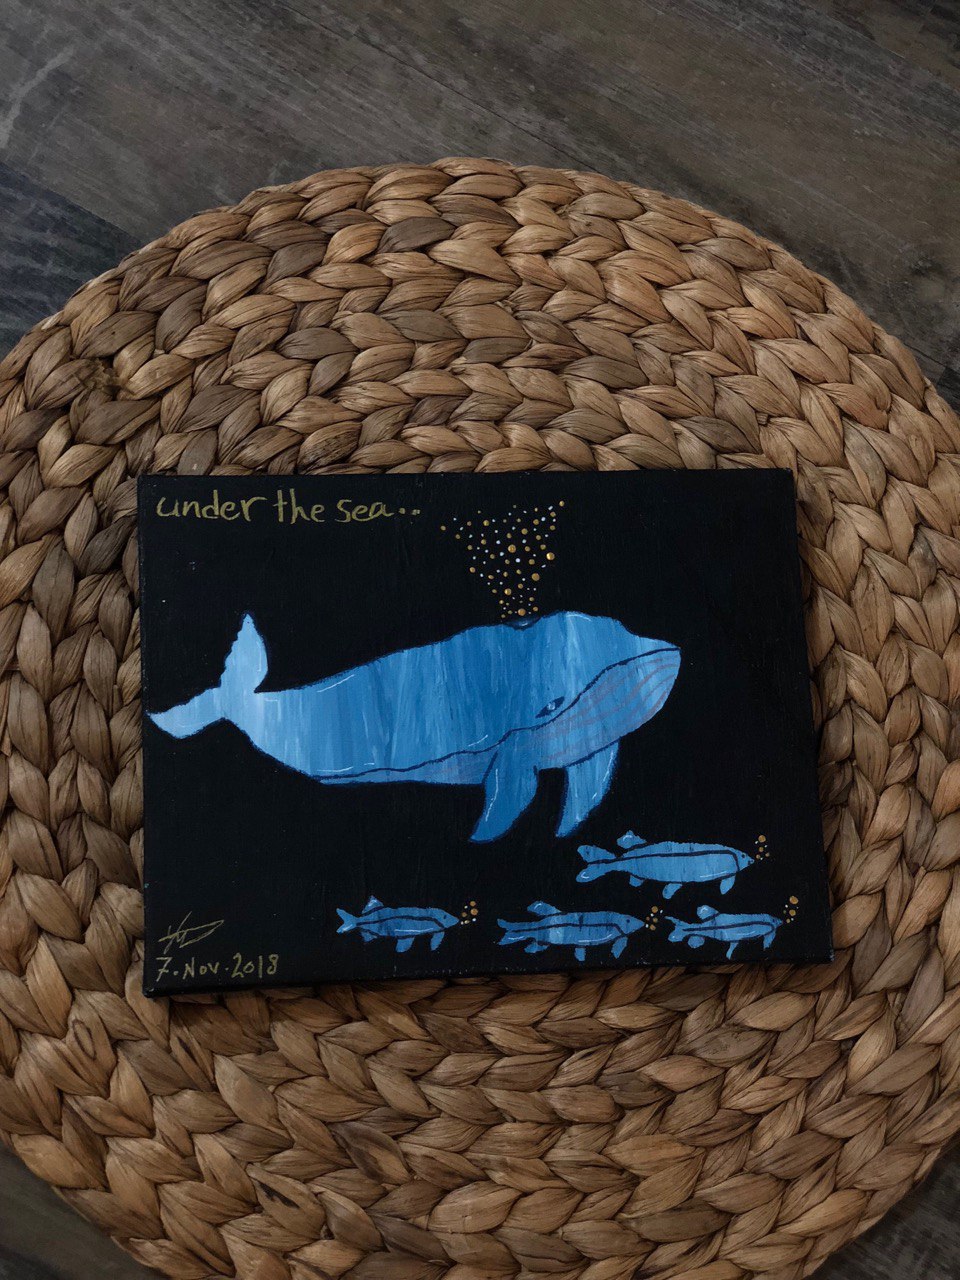 under the sea..
7.Nov.2018